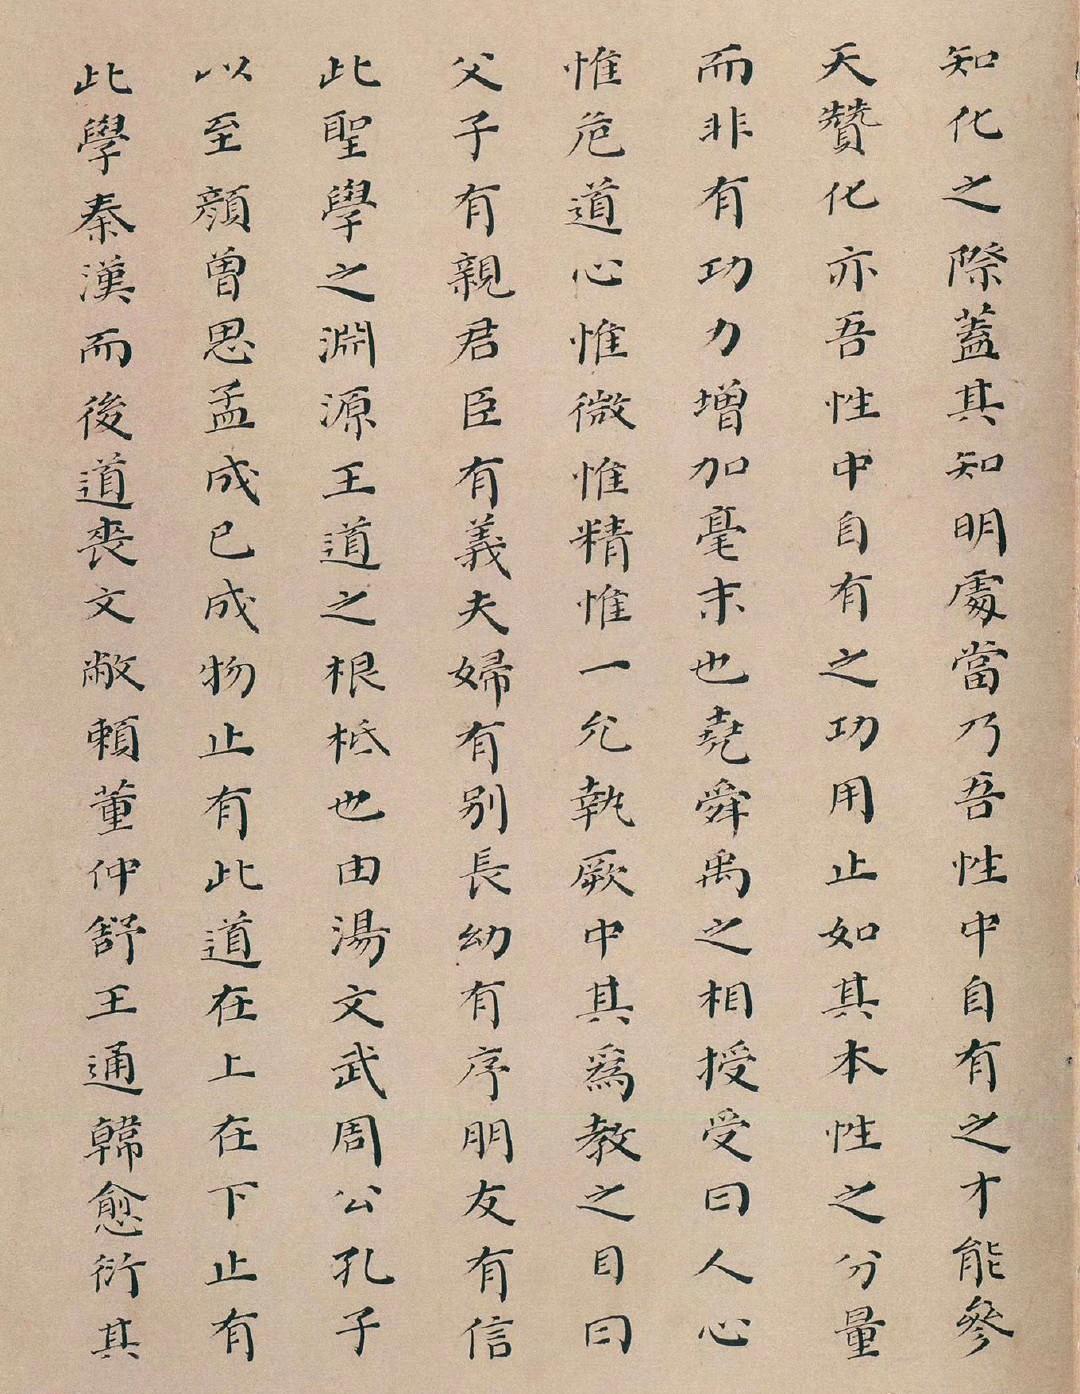 知化之際蓋其知明處當乃吾性中自有之才能參
天贊化亦吾性中自有之功用止如其本性之分量
而非有功力增加毫末也堯舜禹之相授受曰人心
惟危道心惟微惟精惟一允執厥中其爲教之目曰
父子有親君臣有義夫婦有別長幼有序朋友有信
此聖學之淵源王道之根柢也由湯文武周公孔子
以至顏曾思孟成已成物止有此道在上在下止有
此學秦漢而後道喪文敝賴董仲舒王通韓愈衍其